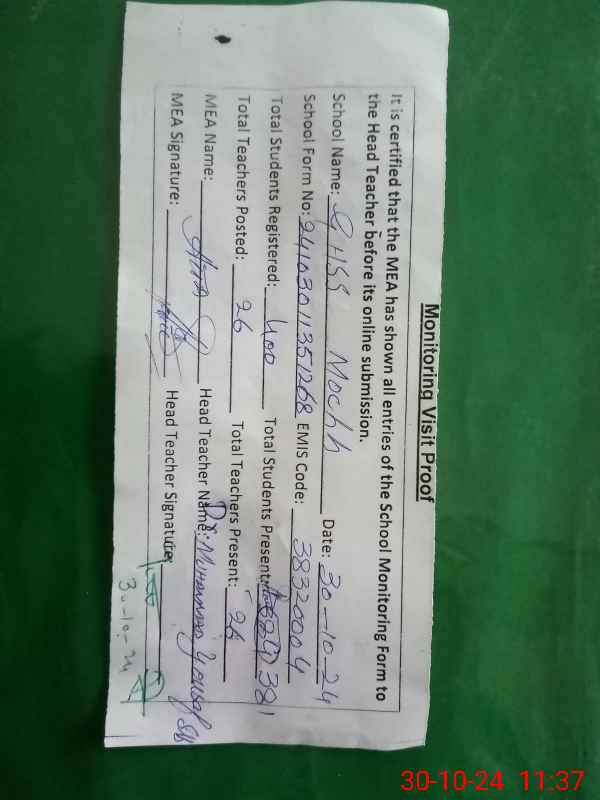 Monitoring Visit Proof
It is certified that the MEA has shown all entries of the School Monitoring Form to
the Head Teacher before its online submission.
School Name: GHSS Mochh Date: 30-10-24
School Form No: 24103011351268 EMIS Code: 38320004
Total Students Registered: 400 Total Students Present: 381
Total Teachers Posted: 26 Total Teachers Present: 26
MEA Name: Head Teacher Name: Dr. Muhammad Yousaf
MEA Signature: Head Teacher Signature:
30-10-24
30-10-24 11:37